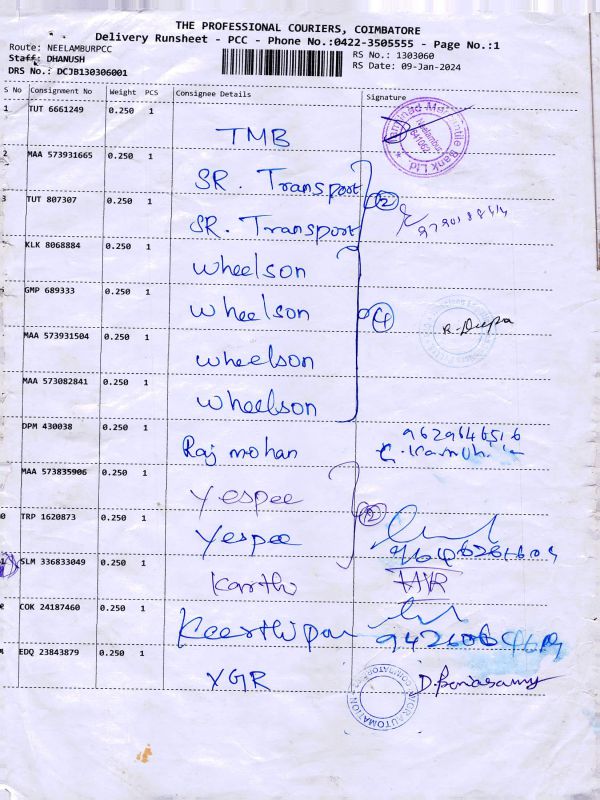 THE PROFESSIONAL COURIERS, COIMBATORE
Delivery Runsheet - PCC - Phone No.:0422-3505555 - Page No.:1
Route: NEELAMBURPCC
RS No.: 1303060
Staff: DHANUSH
RS Date: 09-Jan-2024
DRS No.: DCJB130306001
S No Consignment No Weight PCS Consignee Details Signature
1 TUT 6661249 0.250 1
TMB
Neelambur
641062
Bank Ltd
2 MAA 573931665 0.250 1
SR. Transport
2
3 TUT 807307 0.250 1
SR. Transport
KLK 8068884 0.250 1
Wheelson
GMP 689333 0.250 1
Wheelson
4
R. Deepa
MAA 573931504 0.250 1
Wheelson
MAA 573082841 0.250 1
Wheelson
DPM 430038 0.250 1
Raj mohan
9629646516
MAA 573835906 0.250 1
Yespee
2
0 TRP 1620873 0.250 1
Yespee
SLM 336833049 0.250 1
Karthi
COK 24187460 0.250 1
Keerthi
EDQ 23843879 0.250 1
YGR
AUTOMATION